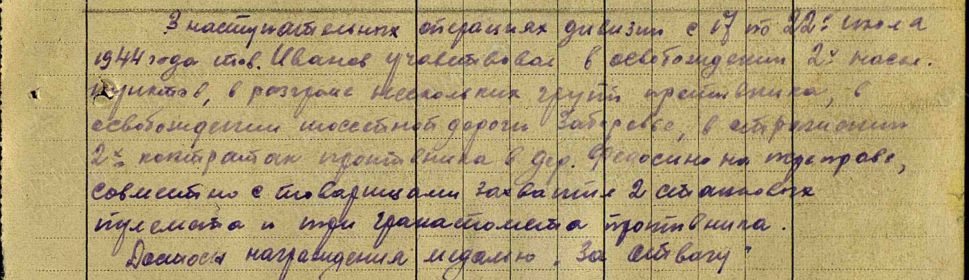 В наступательных операциях дивизии с 17 по 22: июля
1944 года тов. Иванов участвовал в освобождении 2х насел.
пунктов, в разгроме нескольких групп противника, в
освобождении шоссейной дороги в отражении
2х контратак противника в дер. на переправе,
совместно с товарищами захватил 2 станковых
пулемета и три гранатомета противника.
Достоин награждения медалью "За отвагу"